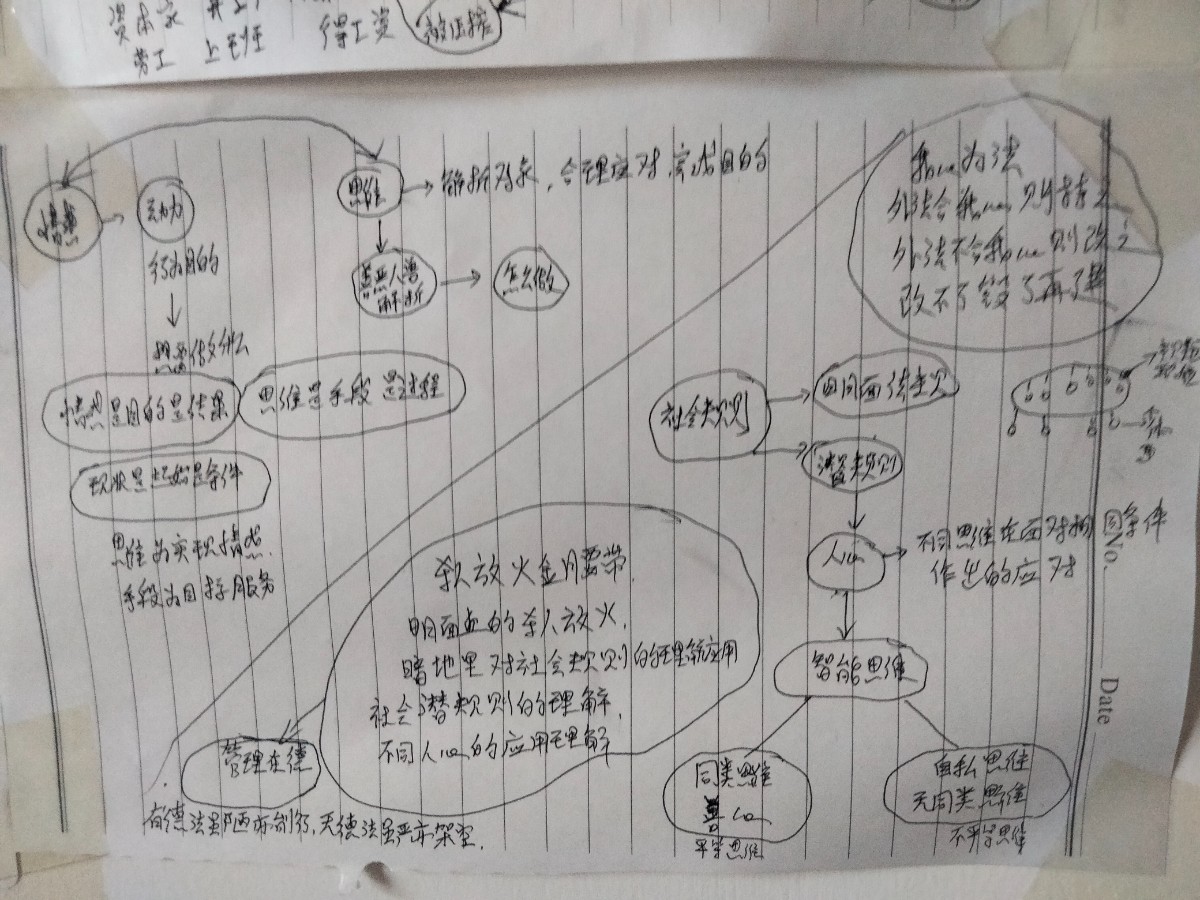 资本家
劳工 上班 得工资
被压榨
情感
动力
行为目的
想要做什么
情感是目的是结果
现状是起始是条件
思维为实现情感.
手段为目标服务
思维
解析对象，合理应对，完成目的
善恶人兽
解析
怎么做
思维是手段 是过程
我心为法
外法合我心则持之
外法不合我心则改之
改不了毁了再了
社会规则
明面法规
潜规则
人心
不同思维在面对相同条件
作出的应对
智能思维
同类思维
善心
平等思维
自私思维
无同类思维
不平等思维
杀人放火金腰带.
明面上的杀人放火.
暗地里对社会规则的理解应用
社会潜规则的理解.
不同人心的应用理解
管理在德
有德法虽陋亦能行, 无德法虽严亦架空.
No.
Date